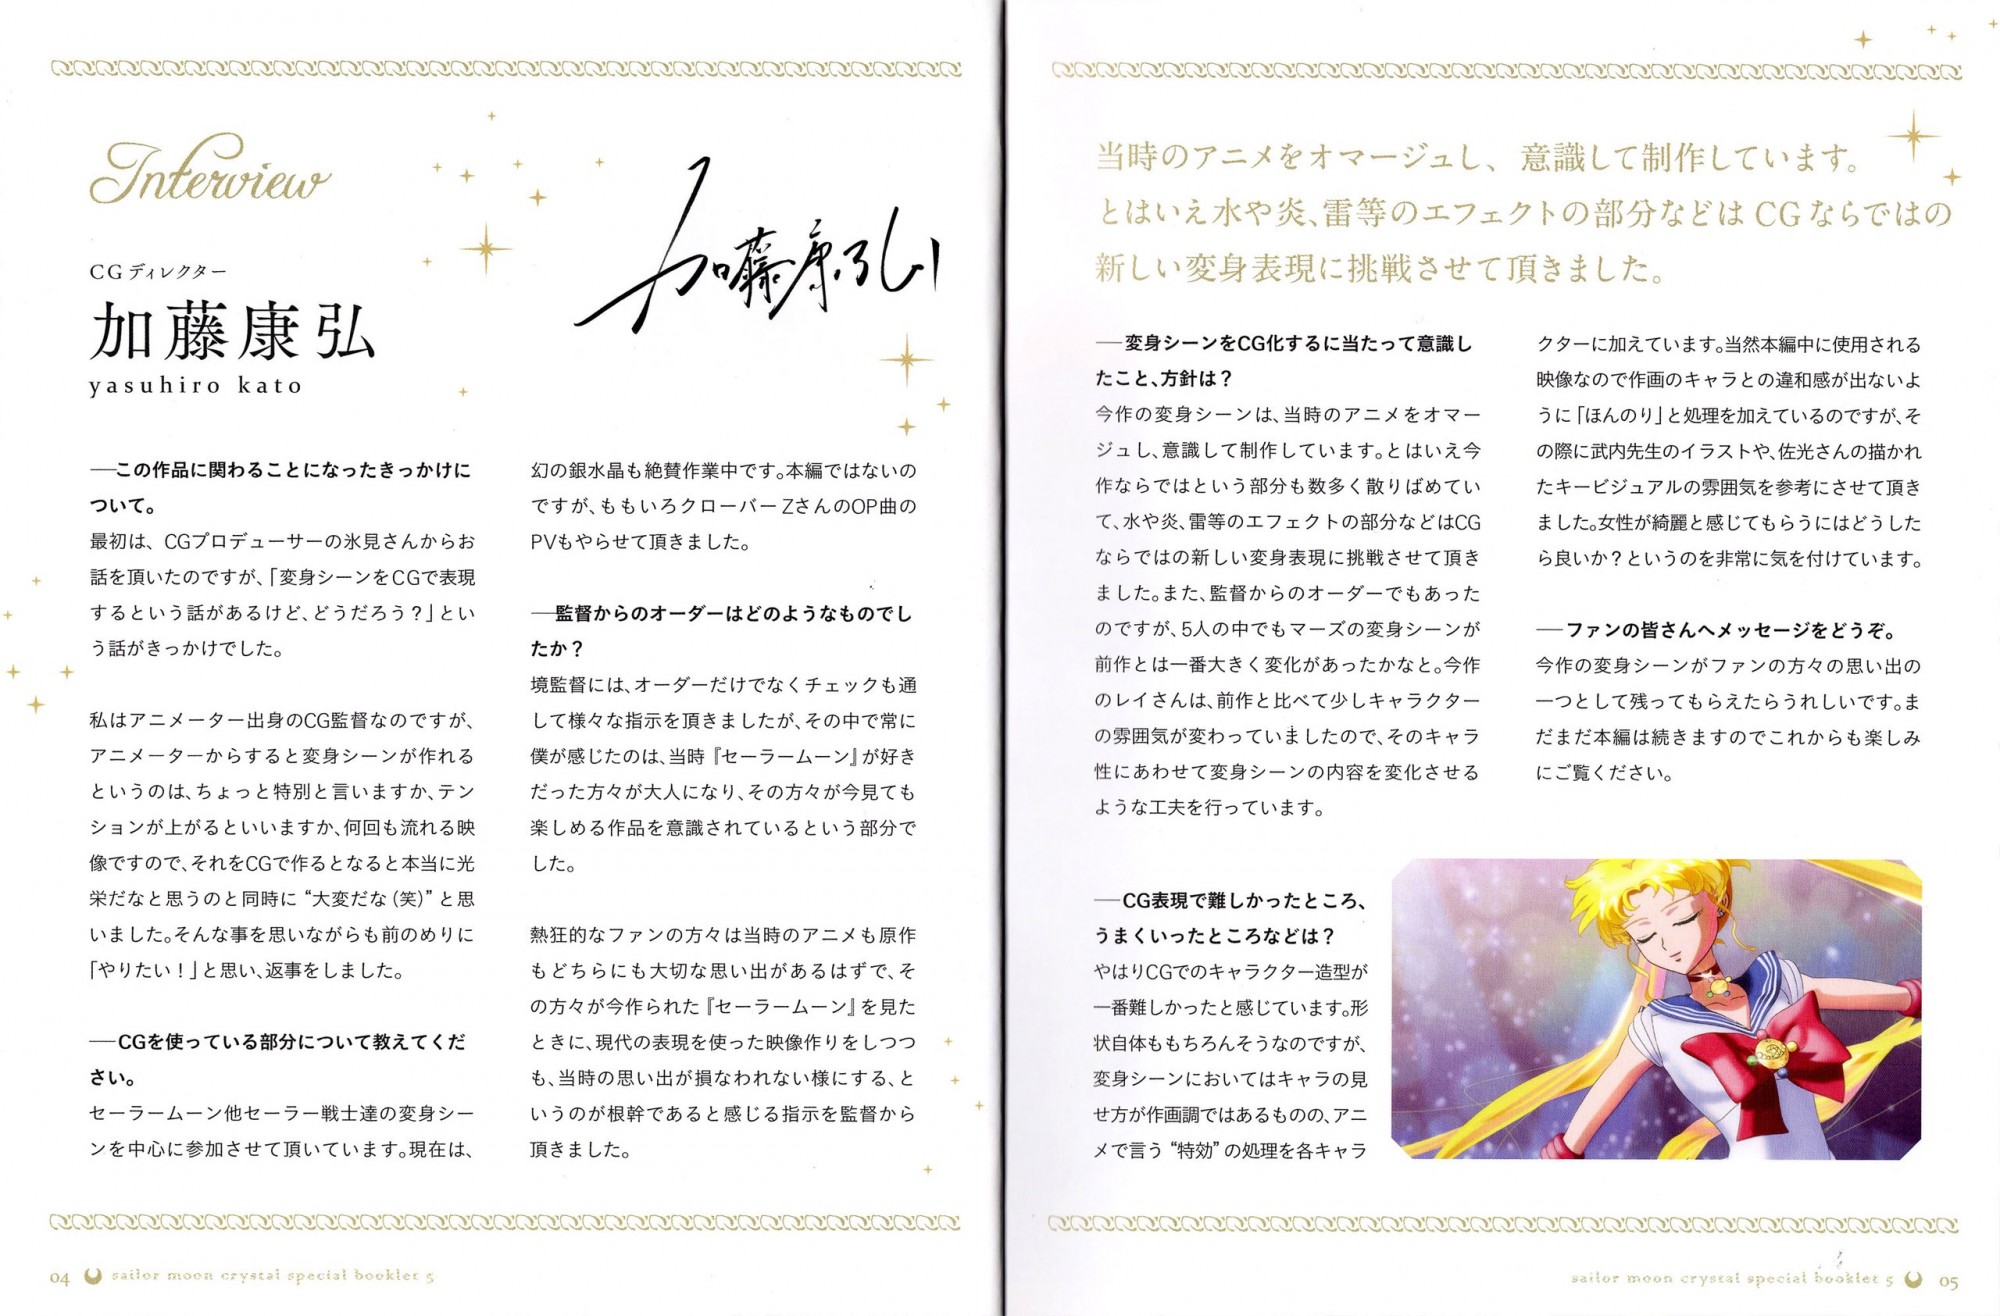 Interview
CGディレクター
加藤康弘
yasuhiro kato
加藤康弘
──この作品に関わることになったきっかけに
ついて。
最初は、CGプロデューサーの氷見さんからお
話を頂いたのですが、「変身シーンをCGで表現
するという話があるけど、どうだろう？」とい
う話がきっかけでした。
私はアニメーター出身のCG監督なのですが、
アニメーターからすると変身シーンが作れる
というのは、ちょっと特別と言いますか、テン
ションが上がるといいますか、何回も流れる映
像ですので、それをCGで作るとなると本当に光
栄だなと思うのと同時に“大変だな（笑）”と思
いました。そんな事を思いながらも前のめりに
「やりたい！」と思い、返事をしました。
──CGを使っている部分について教えてくだ
さい。
セーラームーン他セーラー戦士達の変身シー
ンを中心に参加させて頂いています。現在は、
幻の銀水晶も絶賛作業中です。本編ではないの
ですが、ももいろクローバーZさんのOP曲の
PVもやらせて頂きました。
──監督からのオーダーはどのようなものでし
たか？
境監督には、オーダーだけでなくチェックも通
して様々な指示を頂きましたが、その中で常に
僕が感じたのは、当時『セーラームーン』が好き
だった方々が大人になり、その方々が今見ても
楽しめる作品を意識されているという部分で
した。
熱狂的なファンの方々は当時のアニメも原作
もどちらにも大切な思い出があるはずで、そ
の方々が今作られた『セーラームーン』を見た
ときに、現代の表現を使った映像作りをしつつ
も、当時の思い出が損なわれない様にする、と
いうのが根幹であると感じる指示を監督から
頂きました。
04 sailor moon crystal special booklet 5
当時のアニメをオマージュし、意識して制作しています。
とはいえ水や炎、雷等のエフェクトの部分などはCGならではの
新しい変身表現に挑戦させて頂きました。
──変身シーンをCG化するに当たって意識し
たこと、方針は？
今作の変身シーンは、当時のアニメをオマー
ジュし、意識して制作しています。とはいえ今
作ならではという部分も数多く散りばめてい
て、水や炎、雷等のエフェクトの部分などはCG
ならではの新しい変身表現に挑戦させて頂き
ました。また、監督からのオーダーでもあった
のですが、5人の中でもマーズの変身シーンが
前作とは一番大きく変化があったかなと。今作
のレイさんは、前作と比べて少しキャラクター
の雰囲気が変わっていましたので、そのキャラ
性にあわせて変身シーンの内容を変化させる
ような工夫を行っています。
──CG表現で難しかったところ、
うまくいったところなどは？
やはりCGでのキャラクター造型が
一番難しかったと感じています。形
状自体ももちろんそうなのですが、
変身シーンにおいてはキャラの見
せ方が作画調ではあるものの、アニ
メで言う“特効”の処理を各キャラ
クターに加えています。当然本編中に使用される
映像なので作画のキャラとの違和感が出ないよ
うに「ほんのり」と処理を加えているのですが、そ
の際に武内先生のイラストや、佐光さんの描かれ
たキービジュアルの雰囲気を参考にさせて頂き
ました。女性が綺麗と感じてもらうにはどうした
ら良いか？というのを非常に気を付けています。
──ファンの皆さんへメッセージをどうぞ。
今作の変身シーンがファンの方々の思い出の
一つとして残ってもらえたらうれしいです。ま
だまだ本編は続きますのでこれからも楽しみ
にご覧ください。
sailor moon crystal special booklet 5 05